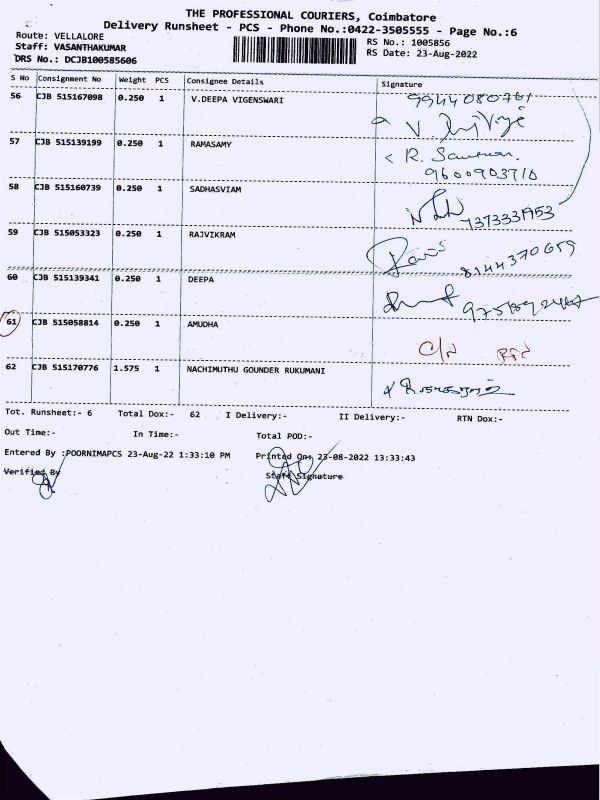 THE PROFESSIONAL COURIERS, Coimbatore
Delivery Runsheet - PCS - Phone No.:0422-3505555 - Page No.:6
Route: VELLALORE
Staff: VASANTHAKUMAR
DRS No.: DCJB100585606
RS No.: 1005856
RS Date: 23-Aug-2022
S No Consignment No Weight PCS Consignee Details Signature
56 CJB 515167098 0.250 1 V.DEEPA VIGENSWARI 9944080761
57 CJB 515139199 0.250 1 RAMASAMY R.
9600903710
58 CJB 515160739 0.250 1 SADHASVIAM
59 CJB 515053323 0.250 1 RAJVIKRAM
60 CJB 515139341 0.250 1 DEEPA
61 CJB 515058814 0.250 1 AMUDHA
62 CJB 515170776 1.575 1 NACHIMUTHU GOUNDER RUKUMANI
Tot. Runsheet:- 6 Total Dox:- 62 I Delivery:- II Delivery:- RTN Dox:-
Out Time:- In Time:- Total POD:-
Entered By :POORNIMAPCS 23-Aug-22 1:33:10 PM Printed On: 23-08-2022 13:33:43
Verified By Staff Signature